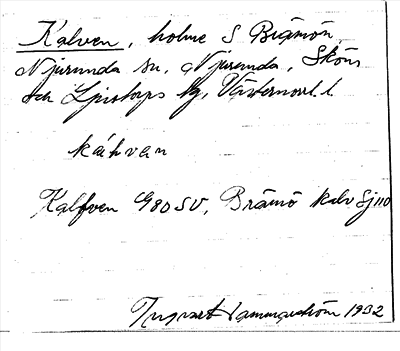 Kalven, holme S Brämön,
Njurunda sn, Njurunda, Sköns
och Ljustorps tg, Västernorrl. l
káhvan
Kalfven G80SV, Brämö kalv Sj110
1932